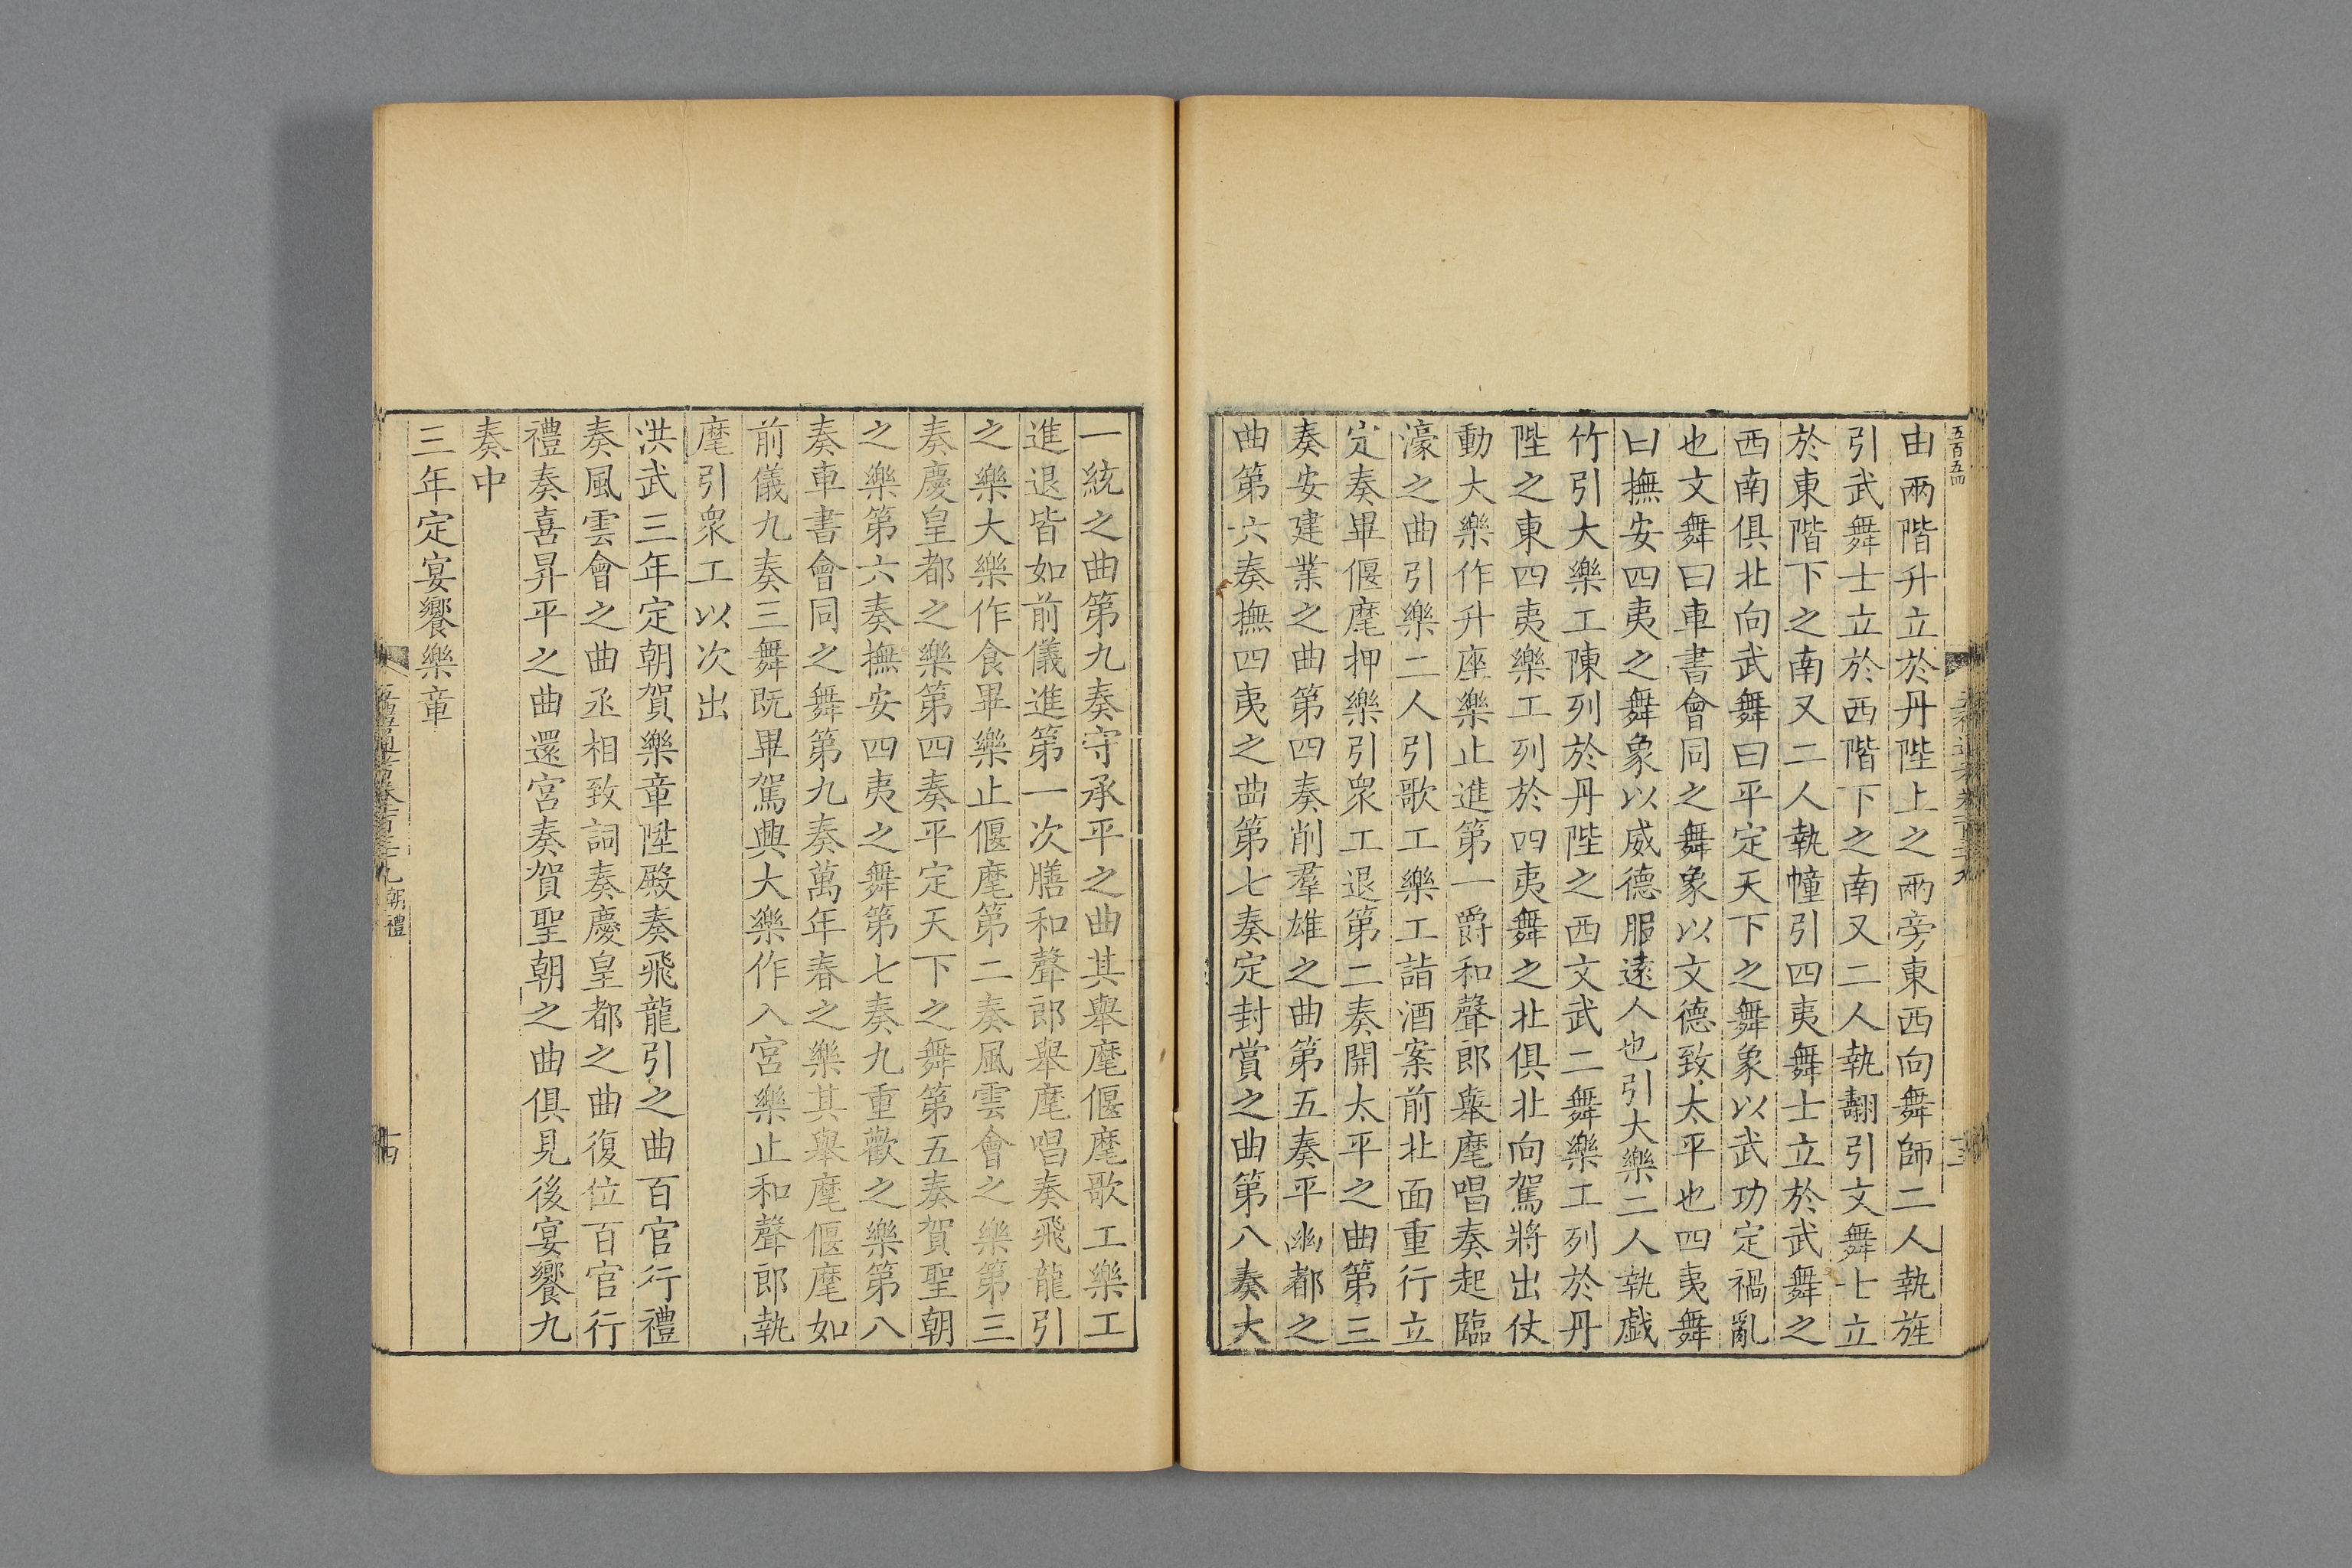 五百五四
由兩階升立於丹陛上之兩旁東西向舞師二人執旌
引武舞士立於西階下之南又二人執翿引文舞士立
於東階下之南又二人執幢引四夷舞士立於武舞之
西南俱北向武舞曰平定天下之舞象以武功定禍亂
也文舞曰車書會同之舞象以文德致太平也四夷舞
曰撫安四夷之舞象以威德服遠人也引大樂二人執戲
竹引大樂工陳列於丹陛之西文武二舞樂工列於丹
陛之東四夷樂工列於四夷舞之北俱北向駕將出仗
動大樂作升座樂止進第一爵和聲郎舉麾唱奏起臨
濠之曲引樂二人引歌工樂工詣酒案前北面重行立
定奏畢偃麾押樂引眾工退第二奏開太平之曲第三
奏安建業之曲第四奏削羣雄之曲第五奏平幽都之
曲第六奏撫四夷之曲第七奏定封賞之曲第八奏大
一統之曲第九奏守承平之曲其舉麾偃麾歌工樂工
進退皆如前儀進第一次膳和聲郎舉麾唱奏飛龍引
之樂大樂作食畢樂止偃麾第二奏風雲會之樂第三
奏慶皇都之樂第四奏平定天下之舞第五奏賀聖朝
之樂第六奏撫安四夷之舞第七奏九重歡之樂第八
奏車書會同之舞第九奏萬年春之樂其舉麾偃麾如
前儀九奏三舞既畢駕興大樂作入宮樂止和聲郎執
麾引眾工以次出
洪武三年定朝賀樂章陞殿奏飛龍引之曲百官行禮
奏風雲會之曲丞相致詞奏慶皇都之曲復位百官行
禮奏喜昇平之曲還宮奏賀聖朝之曲俱見後宴饗九
奏中
三年定宴饗樂章
朝禮
十四